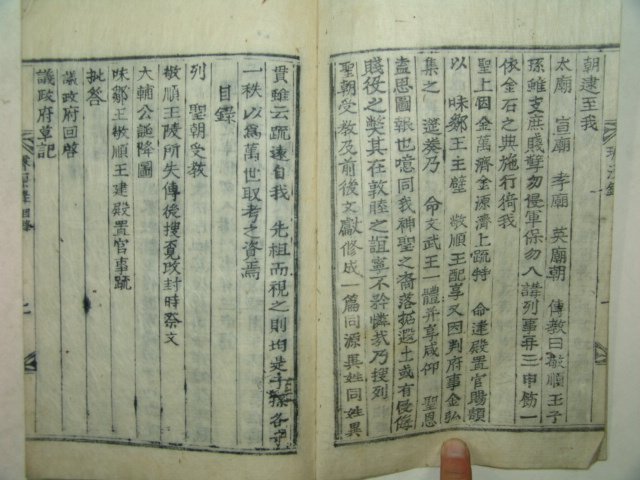 朝逮至我
太廟 宣廟 孝廟 英廟朝 傳敎曰敬順王子
孫雖支庶賤孼勿侵軍保勿入講列事再三申飭一
依金石之典施行猗我
聖上因金萬濟金源濟上疏特 命建殿置官賜額
以 味鄒王主壁 敬順王配享又因判府事金弘
集之 筵奏乃 命文武王一體幷享咸仰 聖恩
盍思圖報也噫同我神聖之裔落拓遐土或有侵
賤役之獘其在敦睦之誼寧不矜憐玆乃搜列
聖朝受敎及前後文獻修成一篇同源異姓同姓異
貫雖云疏遠自我 先祖而視之則均是子孫各守
一秩以爲萬世取考之資焉
目錄
列 聖朝受敎
敬順王陵所失傳後搜覓改封時祭文
大輔公誕降圖
味鄒王敬順王建殿置官事疏
批答
議政府回啓
議政府草記